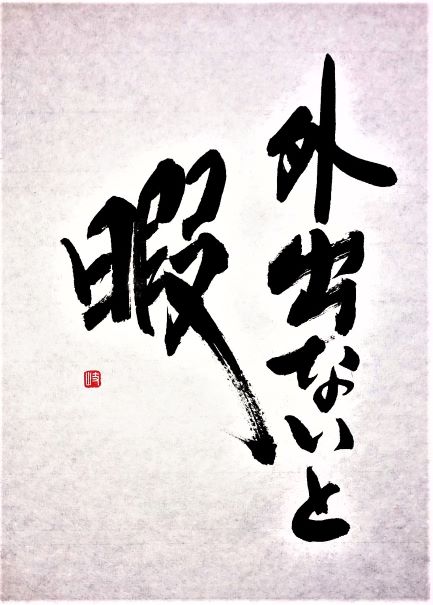 外出ないと
暇
岐